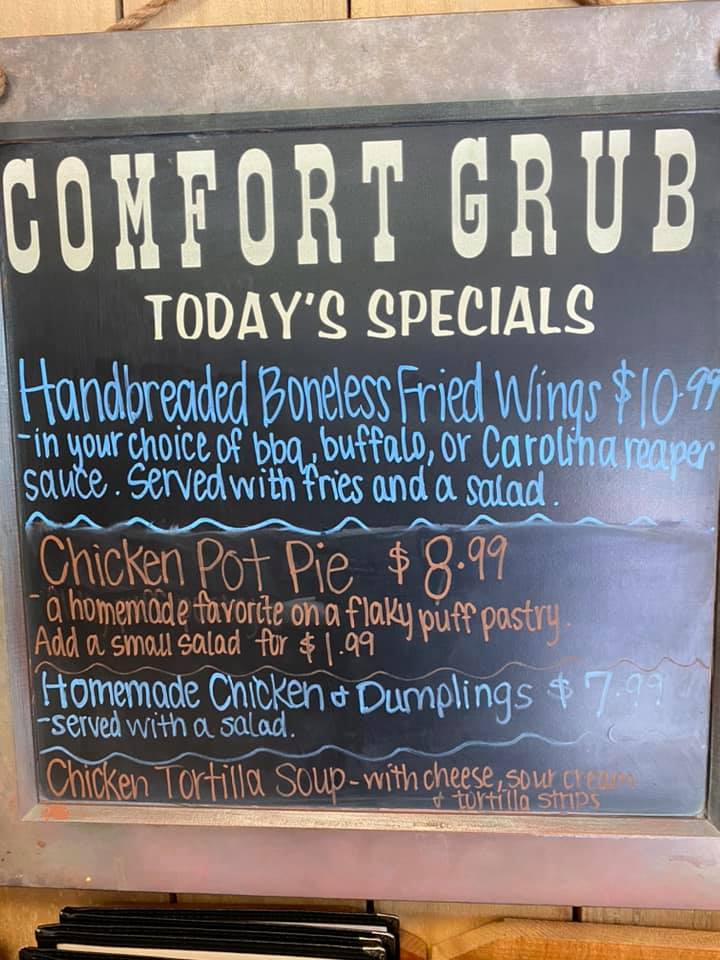 COMFORT GRUB
TODAY'S SPECIALS
Handbreaded Boneless Fried Wings $10.99
-in your choice of bbq, buffalo, or Carolina reaper
sauce. Served with fries and a salad.
Chicken Pot Pie $8.99
-a homemade favorite on a flaky puff pastry.
Add a small salad for $1.99
Homemade Chicken & Dumplings $7.99
-served with a salad.
Chicken Tortilla Soup-with cheese, sour cream
& tortilla strips